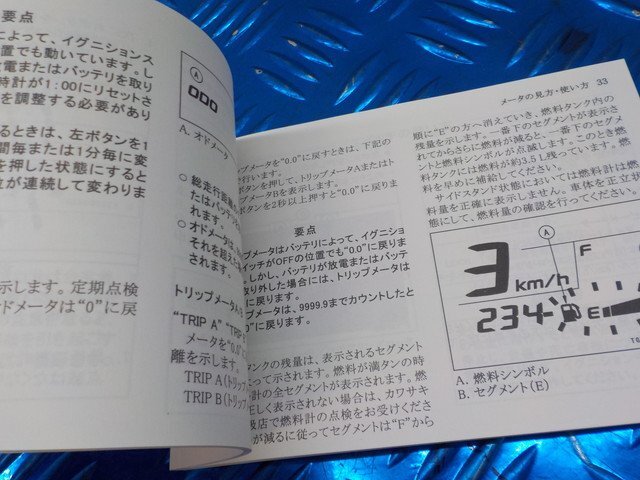 要点
よって、イグニションス
置でも動いています。し
放電またはバッテリを取り
時計が1:00にリセットさ
を調整する必要があり
るときは、左ボタンを1
間毎または1分毎に変
を押した状態にすると
位が連続して変わりま
示します。定期点検
ドメータは"0"に戻
A
000
A. オドメータ
○ 総走行距離
たはバッテリ
れます。
○ オドメータは
それを超え
されます。
トリップメータA・B
"TRIP A" "TRIP B
メータを"0.0"に
離を示します。
TRIP A（トリップ
TRIP B（トリップ
メータの見方・使い方 33
プメータを"0.0"に戻すときは、下記の
行います。
ボタンを押して、トリップメータAまたはト
プメータBを表示します。
ボタンを2秒以上押すと"0.0"に戻りま
要点
プメータはバッテリによって、イグニショ
イッチがOFFの位置でも"0.0"に戻りま
。しかし、バッテリが放電またはバッテ
取り外した場合には、トリップメータは
に戻ります。
プメータは、9999.9までカウントしたと
.0"に戻ります。
タンクの残量は、表示されるセグメント
よって示されます。燃料が満タンの時
計の全セグメントが表示されます。燃
正しく表示されない場合は、カワサキ
扱店で燃料計の点検をお受けくださ
が減るに従ってセグメントは"F"から
順に"E"の方へ消えていき、燃料タンク内の
残量を示します。一番下のセグメントが表示さ
れてからさらに燃料が減ると、一番下のセグメ
ントと燃料シンボルが点滅します。このとき燃
料タンクには燃料が約3.5 L残っています。燃
料を早めに補給してください。
サイドスタンド状態においては燃料計は燃
料量を正確に表示しません。車体を正立状
態にして、燃料量の確認を行ってください。
A
F
3 km/h
234
E
A. 燃料シンボル
B. セグメント（E）